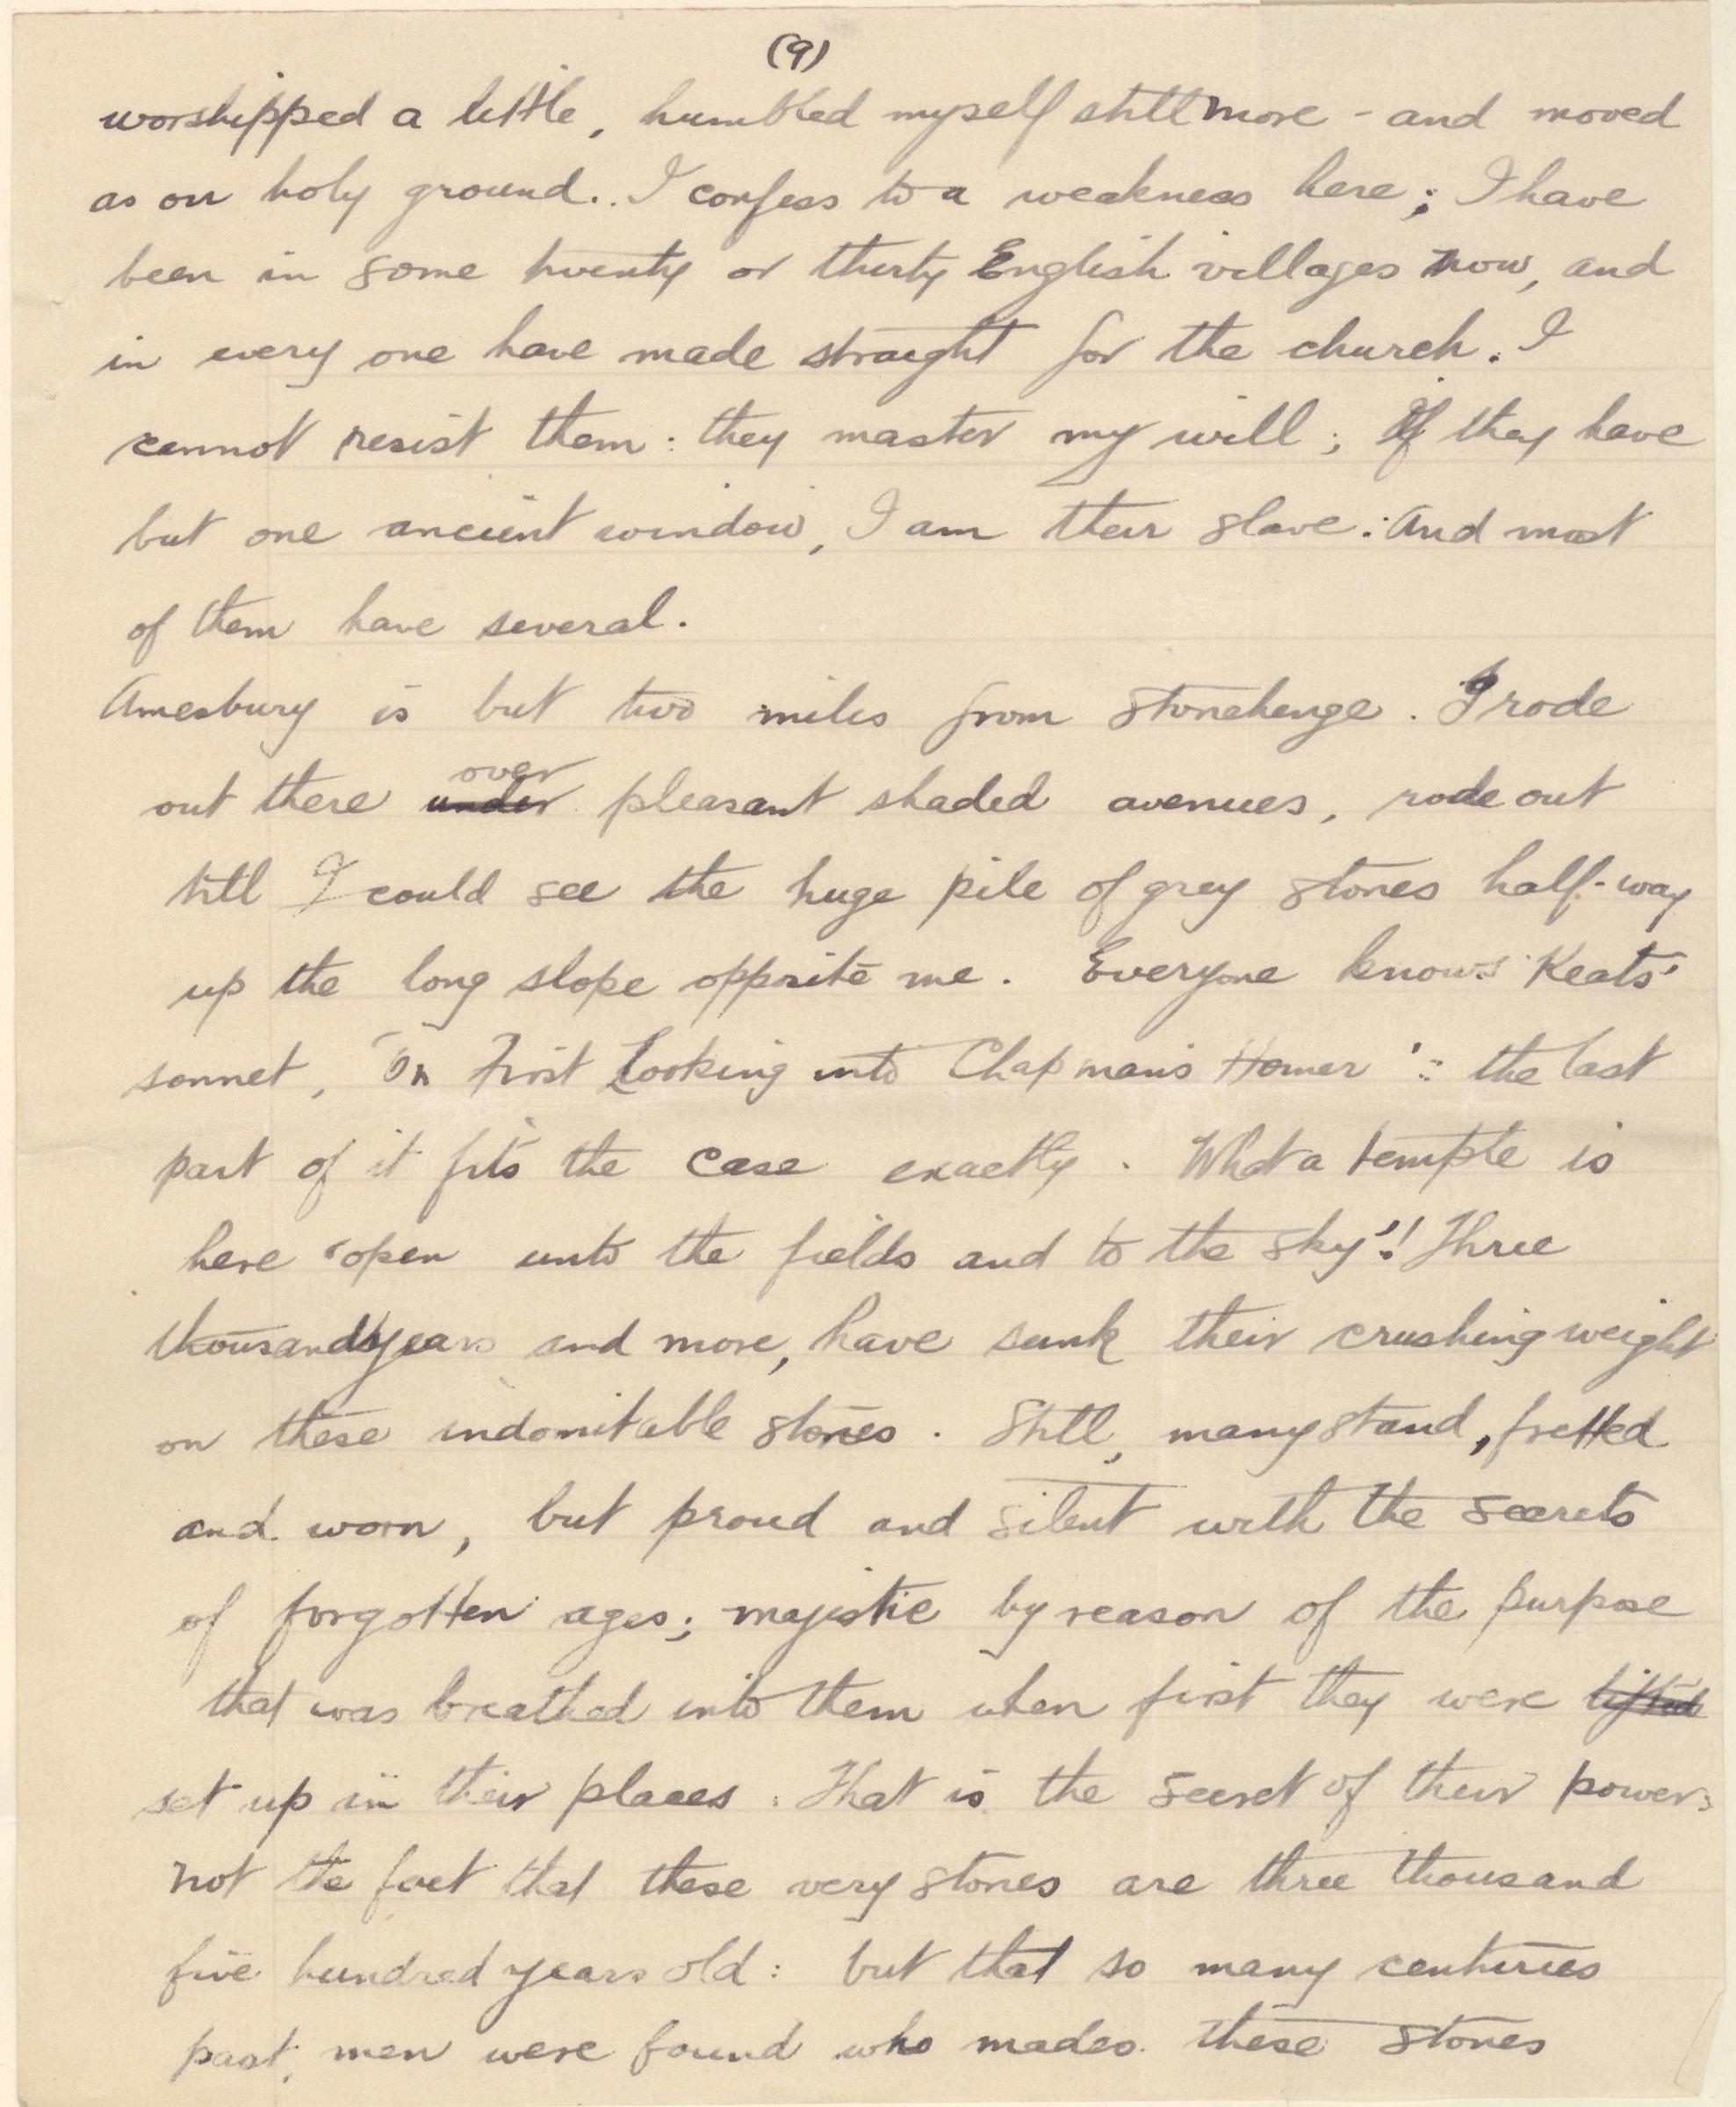 (9)
worshipped a little, humbled myself still more - and moved
as on holy ground. I confess to a weakness here; I have
been in some twenty or thirty English villages now, and
in every one have made straight for the church. I
cannot resist them: they master my will; If they have
but one ancient window, I am their slave: And most
of them have several.
Amesbury is but two miles from Stonehenge. I rode
over
out there under pleasant shaded avenues, rode out
till I could see the huge pile of grey stones half-way
up the long slope opposite me. Everyone knows Keats'
sonnet, 'On First Looking into Chapman's Homer': the last
part of it fits the case exactly. What a temple is
here 'open unto the fields and to the sky'! Three
thousand years and more, have sunk their crushing weight
on these indomitable stones. Still, many stand, fretted
and worn, but proud and silent with the secrets
of forgotten ages; majestic by reason of the purpose
that was breathed into them when first they were lifted
set up in their places. That is the secret of their power:
not the fact that these very stones are three thousand
five hundred years old: but that so many centuries
past, men were found who made these stones